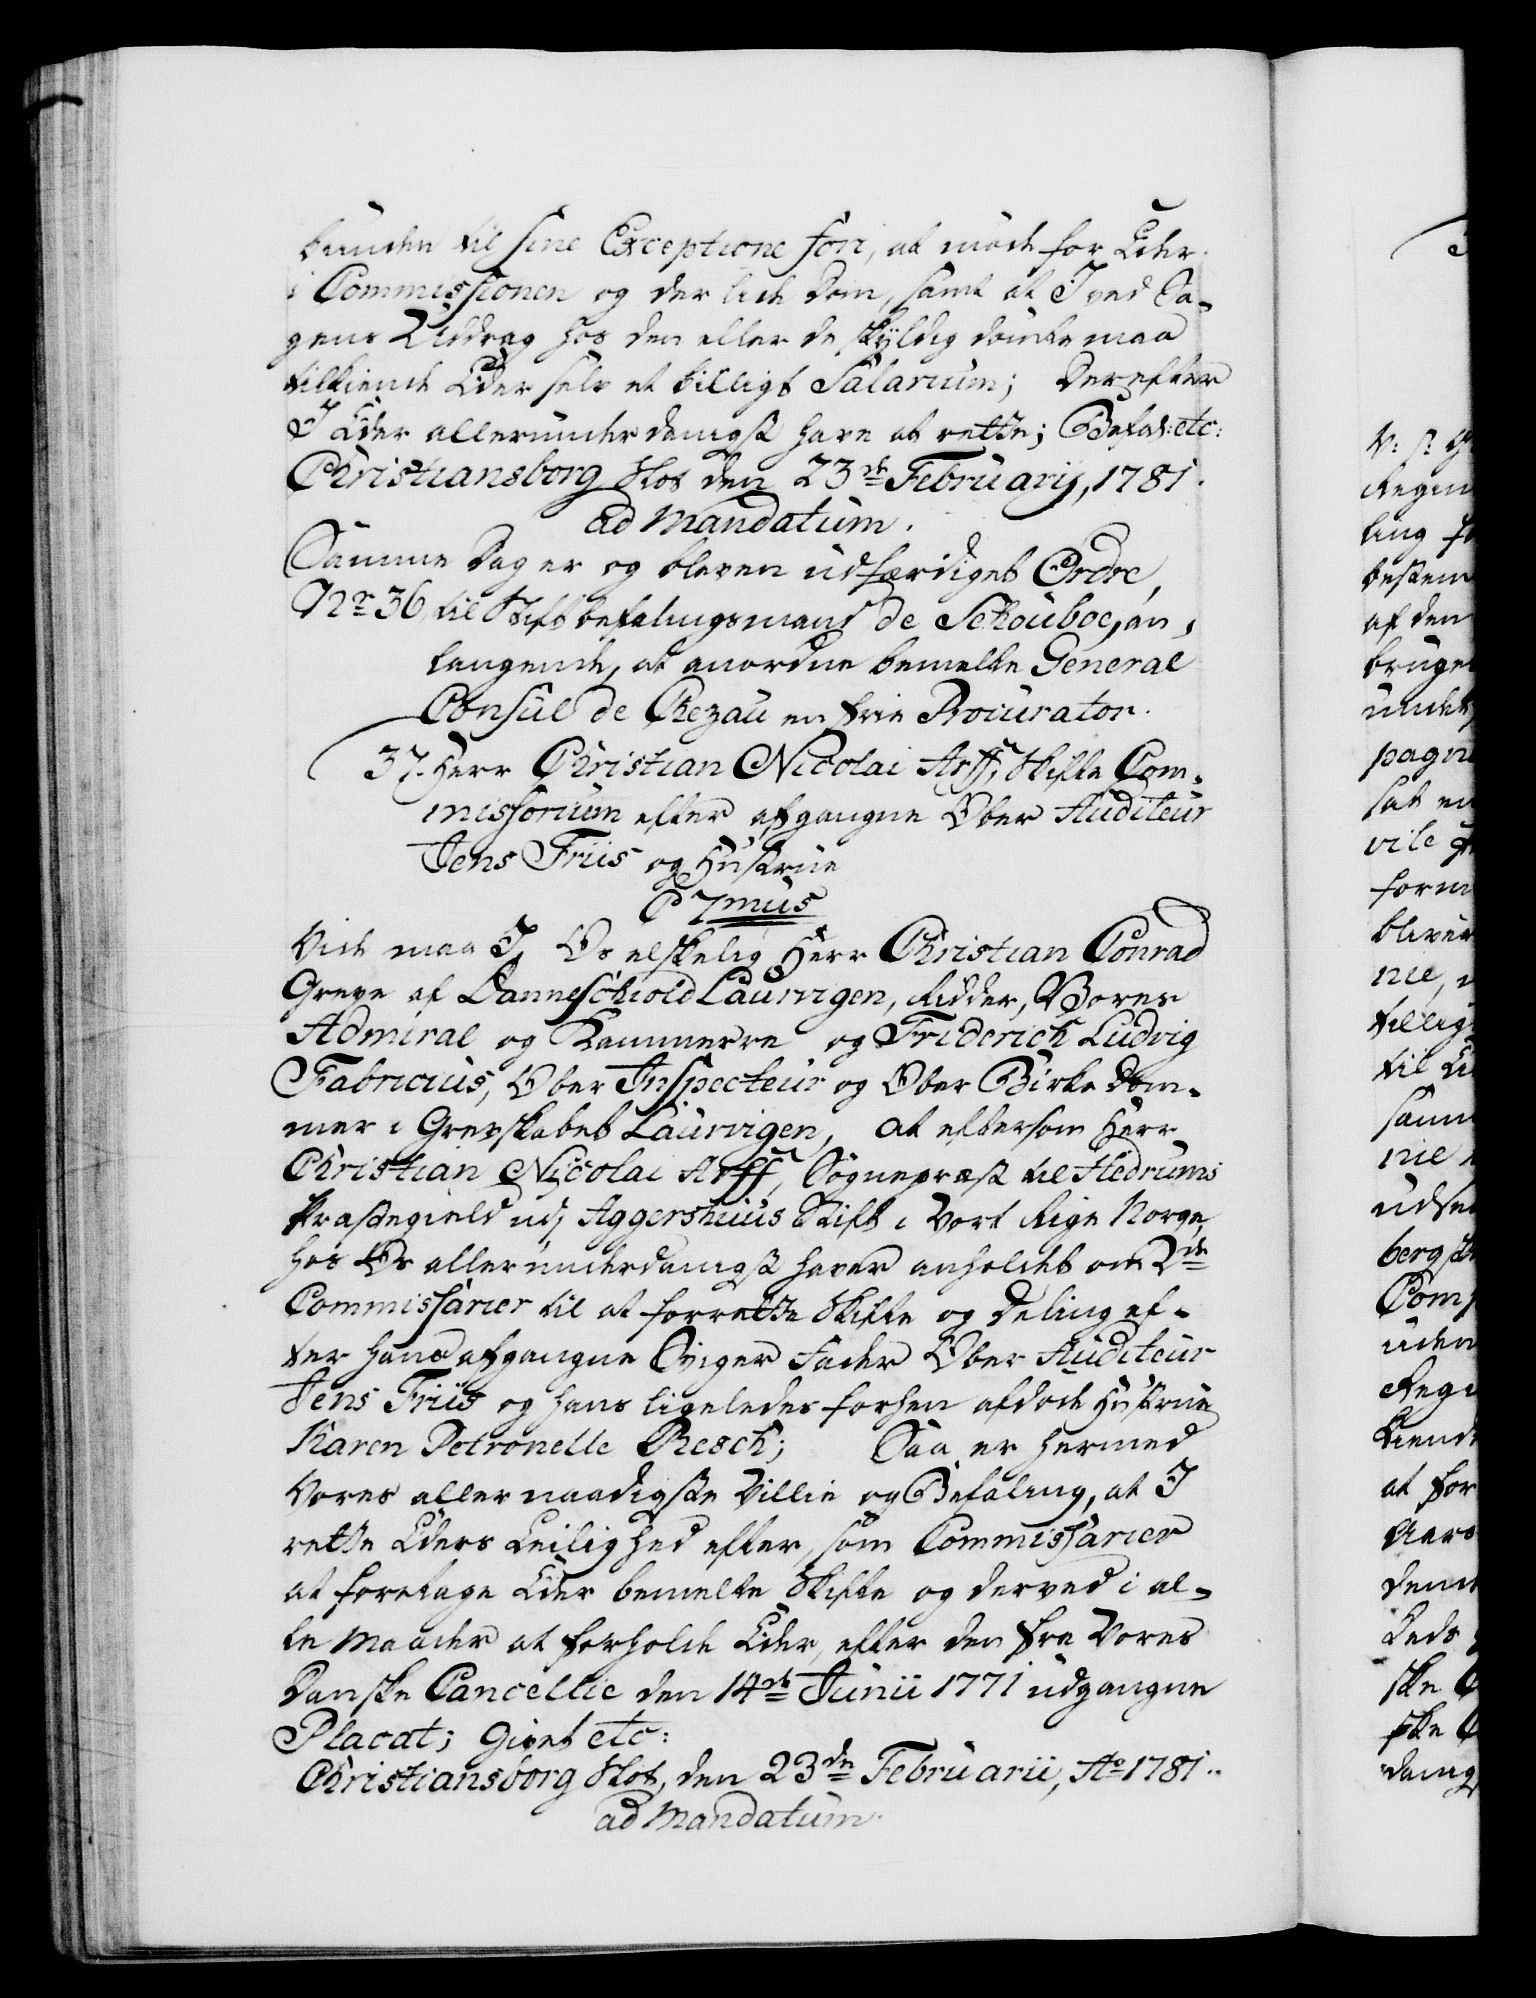 bunden til sine Exceptione fori, at møde for Eder
i Commissionen og der lide Dom, samt at I ved Sa-
gens Uddrag hos den eller de skyldig dømte maa
tilkiende Eder selv et billigt Salarium; Derefter
I Eder allerunderdanigst have at rette; Befal: etc:
Christiansborg Slot den 23de Februarij, 1781.
ad mandatum.
Samme Dag er og bleven udfærdiget Ordre,
Nr 36, til Stiftbefalingsmand de Schouboe, an-
langende, at anordne bemelte General
Consul de Chezau en frie Procurator.
37. Herr Christian Nicolai Arff, Skifte Com-
missorium efter afgangne Ober Auditeur
Jens Friis og Hustrue
C 7mus
Vide maa I, Os elskelig Herr Christian Conrad
Greve af Danneschiold Laurvigen, Ridder, Vores
Admiral og Kammerre og Friderich Ludvig
Fabricius, Ober Inspecteur og Ober Birke Dom-
mer i Grevskabet Laurvigen, at eftersom Herr
Christian Nicolai Arff, Sognepræst til Hedrums
Præstegield udj Aggershuus Stift i Vort Rige Norge,
hos Os allerunderdanigst haver anholdet om 2de
Commissarier til at forrette Skifte og Deling ef-
ter hans afgangne Sviger Fader Ober Auditeur
Jens Friis og hans ligeledes forhen afdøde Hustrue
Karen Petronelle Resch; Saa er hermed
Vores allernaadigste Villie og Befaling, at I
rette Eders Leilighed efter, som Commissarier
at foretage Eder bemelte Skifte og derved i al-
le Maader at forholde Eder, efter den fra Vores
Danske Cancellie den 14de Junii 1771 udgangne
Placat; Givet etc:
Christiansborg Slot, den 23de Februarii, Ao 1781.
ad mandatum.